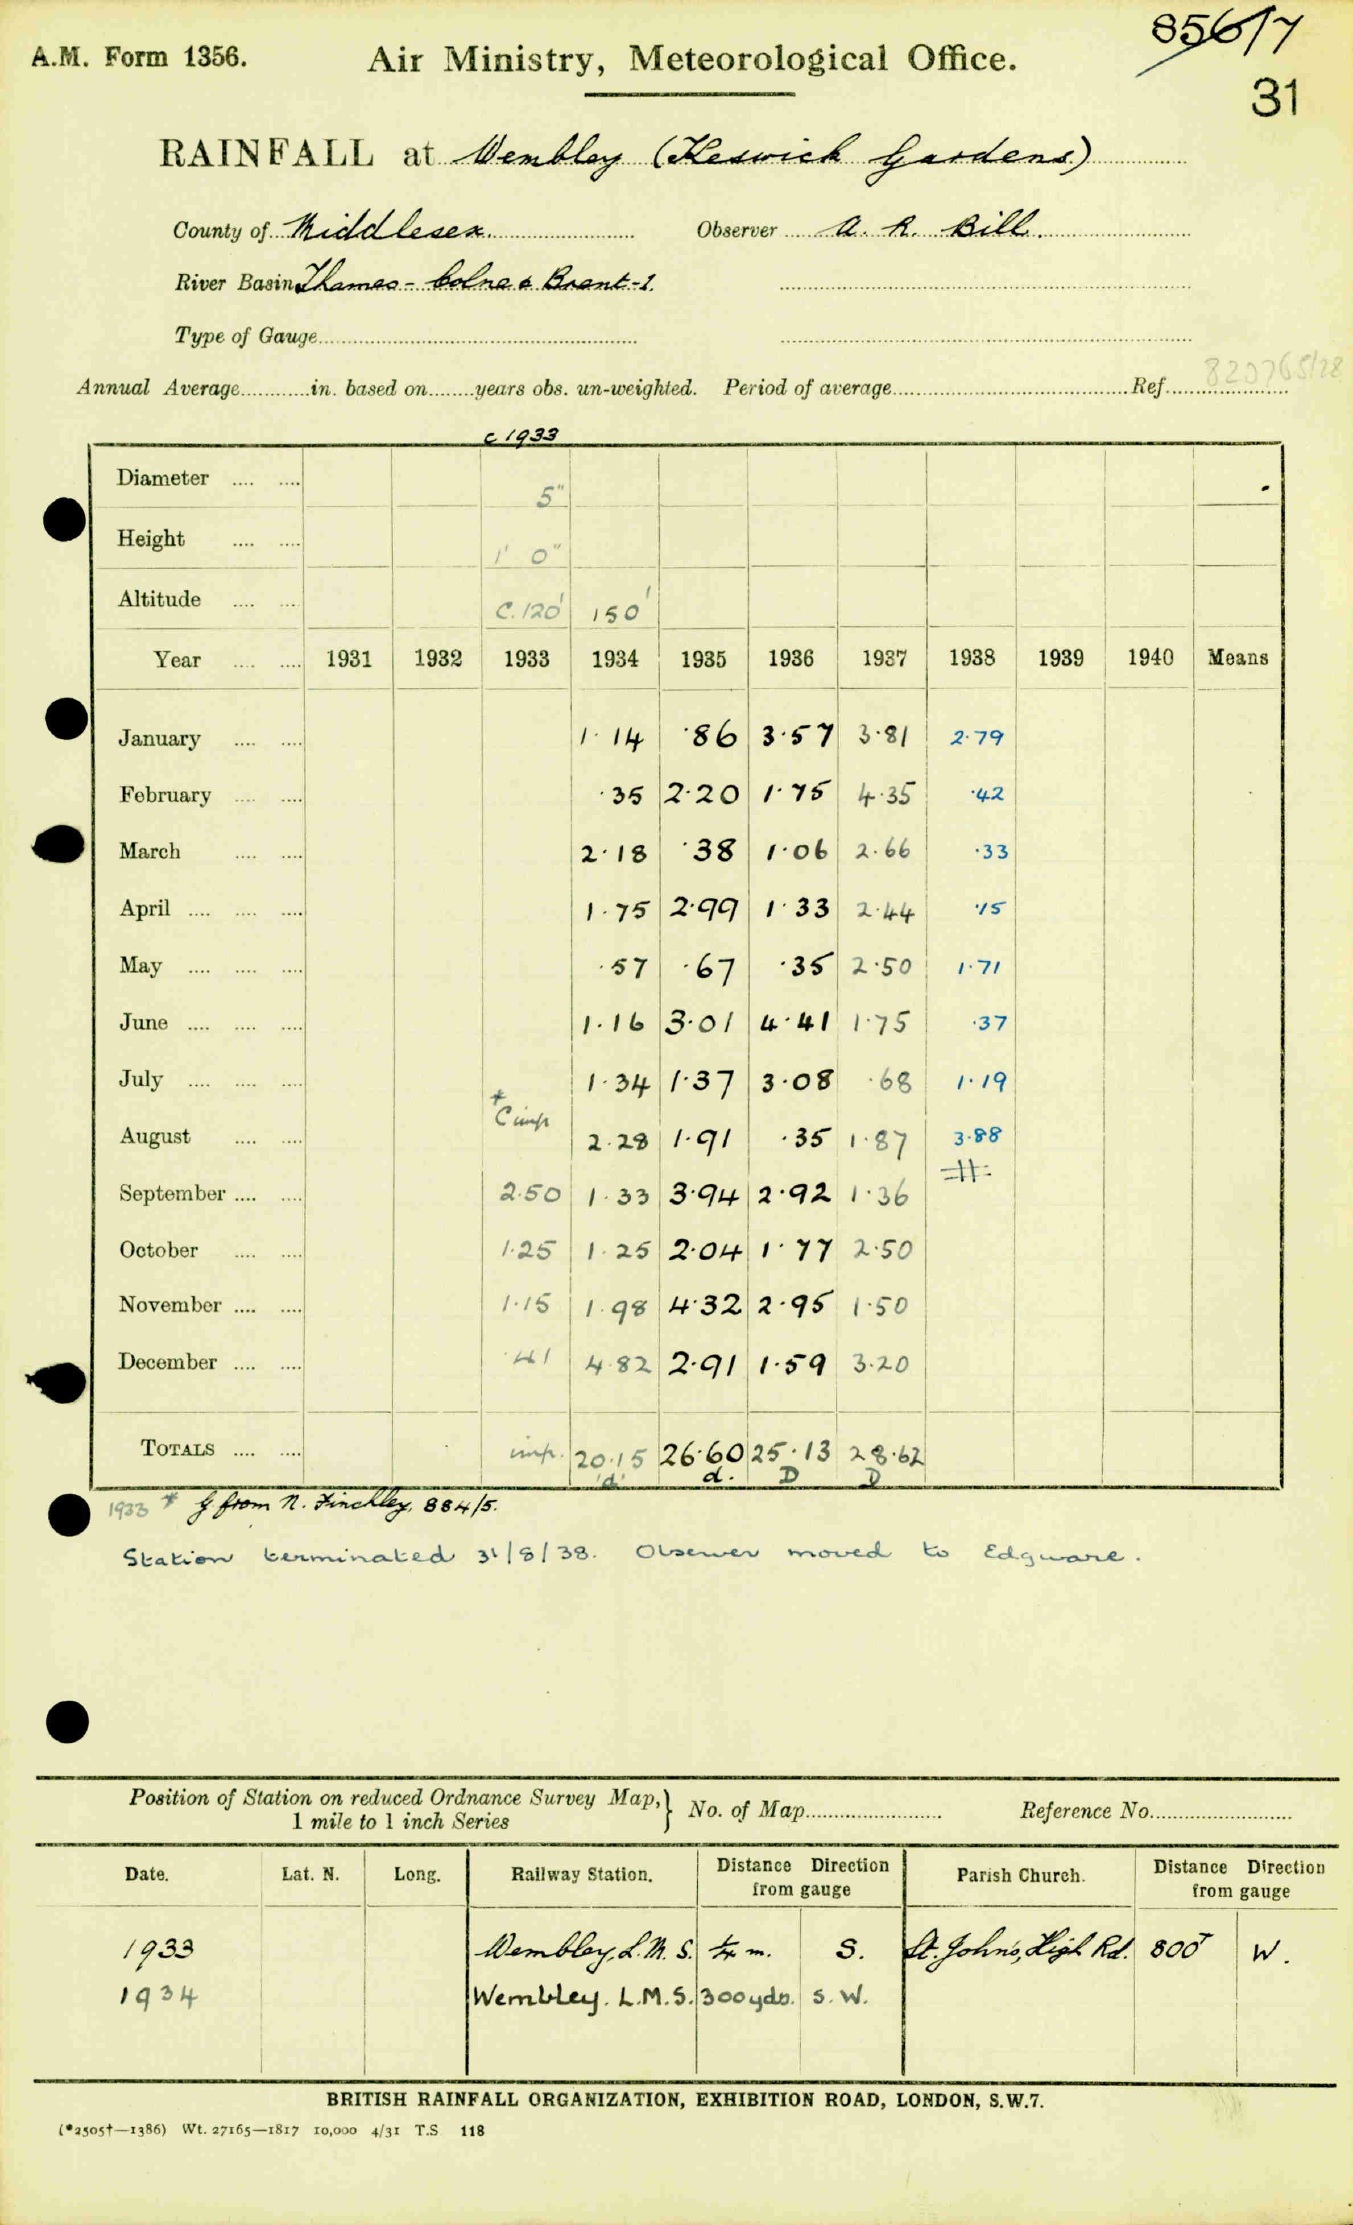 856/7
A.M. Form 1356. Air Ministry, Meteorological Office.
31
RAINFALL at Wembley (Keswick Gardens)
County of Middlesex. Observer A. R. Bill.
River Basin Thames - Colne & Brent-1.
Type of Gauge
Annual Average in. based on years obs. un-weighted. Period of average Ref. 820765/28
c 1933
Diameter 5"
Height 1' 0"
Altitude C.120' 150'
Year 1931 1932 1933 1934 1935 1936 1937 1938 1939 1940 Means
January 1.14 .86 3.57 3.81 2.79
February .35 2.20 1.75 4.35 .42
March 2.18 .38 1.06 2.66 .33
April 1.75 2.99 1.33 2.44 .15
May .57 .67 .35 2.50 1.71
June 1.16 3.01 4.41 1.75 .37
July 1.34 1.37 3.08 .68 1.19
* C imp
August 2.28 1.91 .35 1.87 3.88
September 2.50 1.33 3.94 2.92 1.36
October 1.25 1.25 2.04 1.77 2.50
November 1.15 1.98 4.32 2.95 1.50
December .41 4.82 2.91 1.59 3.20
TOTALS imp. 20.15 26.60 25.13 28.62
d d. D D
1933 * G from N. Finchley, 884/5.
Station terminated 31/8/38. Observer moved to Edgware.
Position of Station on reduced Ordnance Survey Map, 1 mile to 1 inch Series } No. of Map Reference No.
Date. Lat. N. Long. Railway Station. Distance Direction from gauge Parish Church. Distance Direction from gauge
1933 Wembley, L.M.S. ¼ m. S. St. John's, High Rd. 800' W.
1934 Wembley. L.M.S. 300 yds. S.W.
BRITISH RAINFALL ORGANIZATION, EXHIBITION ROAD, LONDON, S.W.7.
(*2505†—1386) Wt. 27165—1817 10,000 4/31 T.S 118